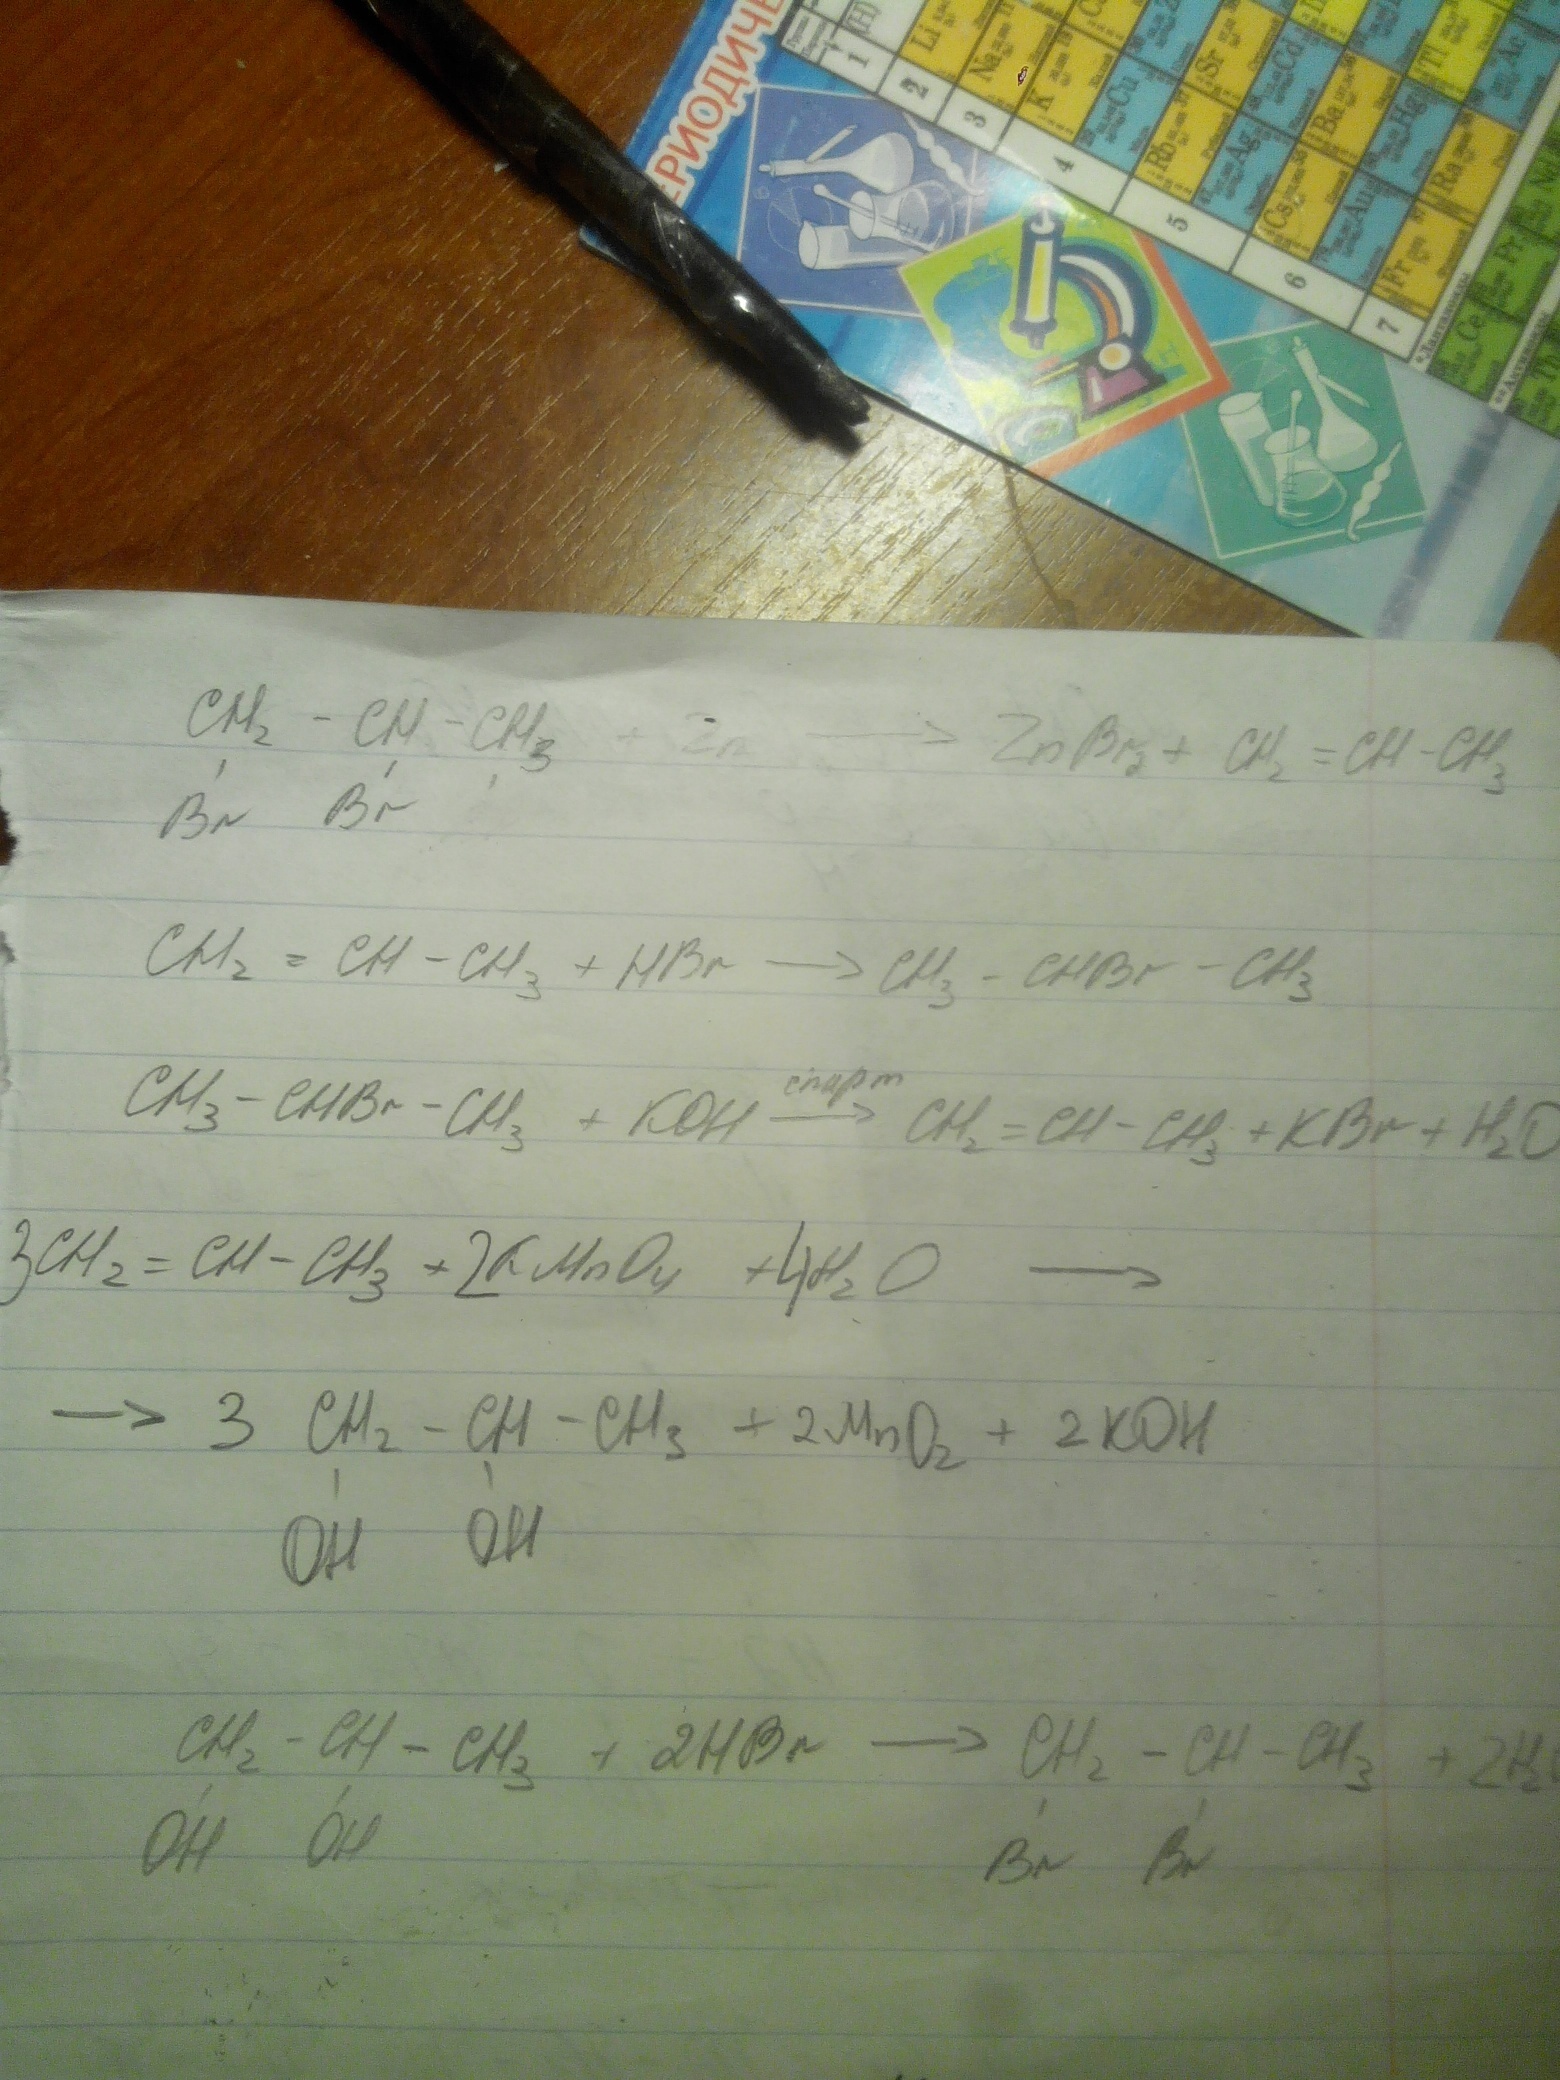 ЕРИОДИЧЕ
(H)
1
2
3
4
5
6
7
Li
Na
K
Cu
Rb
Sr
Ag
Cd
Cs
Ba
Au
Hg
Tl
Fr
Ra
Ac
Ce
Pr
Th
CH₂ - CH - CH₃ + Zn → ZnBr₂ + CH₂ = CH - CH₃
Br Br
CH₂ = CH - CH₃ + HBr → CH₃ - CHBr - CH₃
спирт
CH₃ - CHBr - CH₃ + KOH → CH₂ = CH - CH₃ + KBr + H₂O
3CH₂ = CH - CH₃ + 2KMnO₄ + 4H₂O →
→ 3 CH₂ - CH - CH₃ + 2MnO₂ + 2KOH
OH OH
CH₂ - CH - CH₃ + 2HBr → CH₂ - CH - CH₃ + 2H₂O
OH OH Br Br